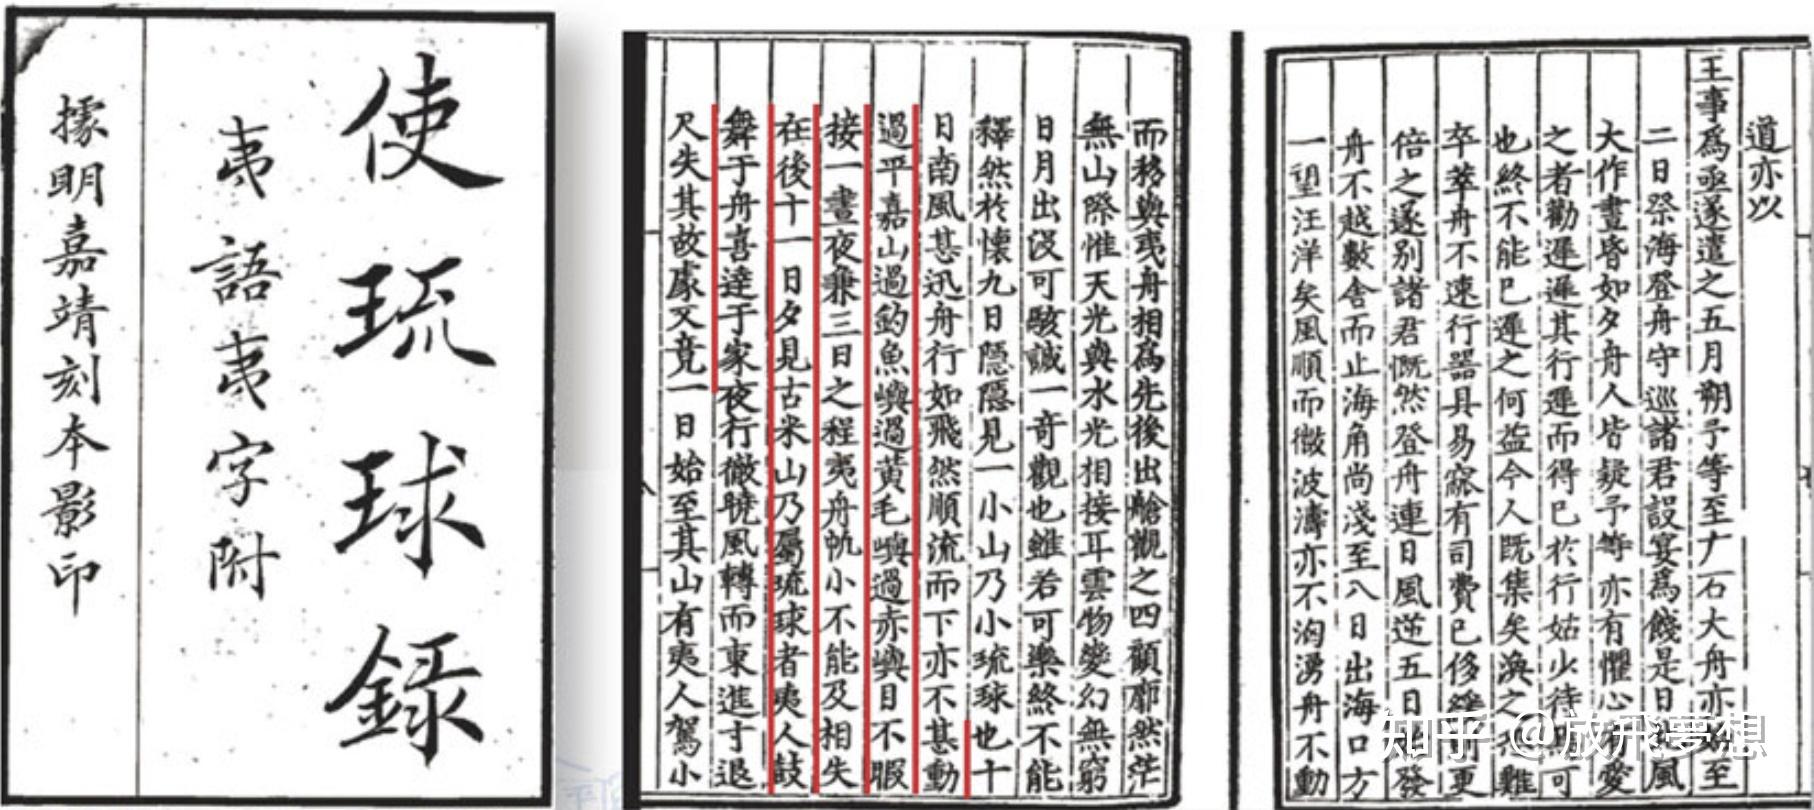 使琉球錄
夷語夷字附
據明嘉靖刻本影印
道亦以
王事為亟遂遣之五月朔予等至广石大舟亦始至
二日祭海登舟守巡諸君設宴為餞是日北風
大作晝昏如夕舟人皆疑予等亦有懼心有愛
之者勸遲遲其行遲而得已於行姑少待焉可
也終不能已遲之何益今人既集矣渙之恐難
卒萃舟不速行器具易窳有司費已侈緩則更
倍之遂別諸君慨然登舟連日風逆五日始發
舟不越數舍而止海角尚淺至八日出海口方
一望汪洋矣風順而微波濤亦不洶湧舟不動
而移與夷舟相為先後出艙觀之四顧廓然茫
無山際惟天光與水光相接耳雲物變幻無窮
日月出沒可駭誠一奇觀也雖若可樂終不能
釋然於懷九日隱隱見一小山乃小琉球也十
日南風甚迅舟行如飛然順流而下亦不甚動
過平嘉山過釣魚嶼過黃毛嶼過赤嶼目不暇
接一晝夜兼三日之程夷舟帆小不能及相失
在後十一日夕見古米山乃屬琉球者夷人鼓
舞于舟喜達于家夜行徹曉風轉而東進寸退
尺失其故處又竟一日始至其山有夷人駕小
知乎 @放飛夢想